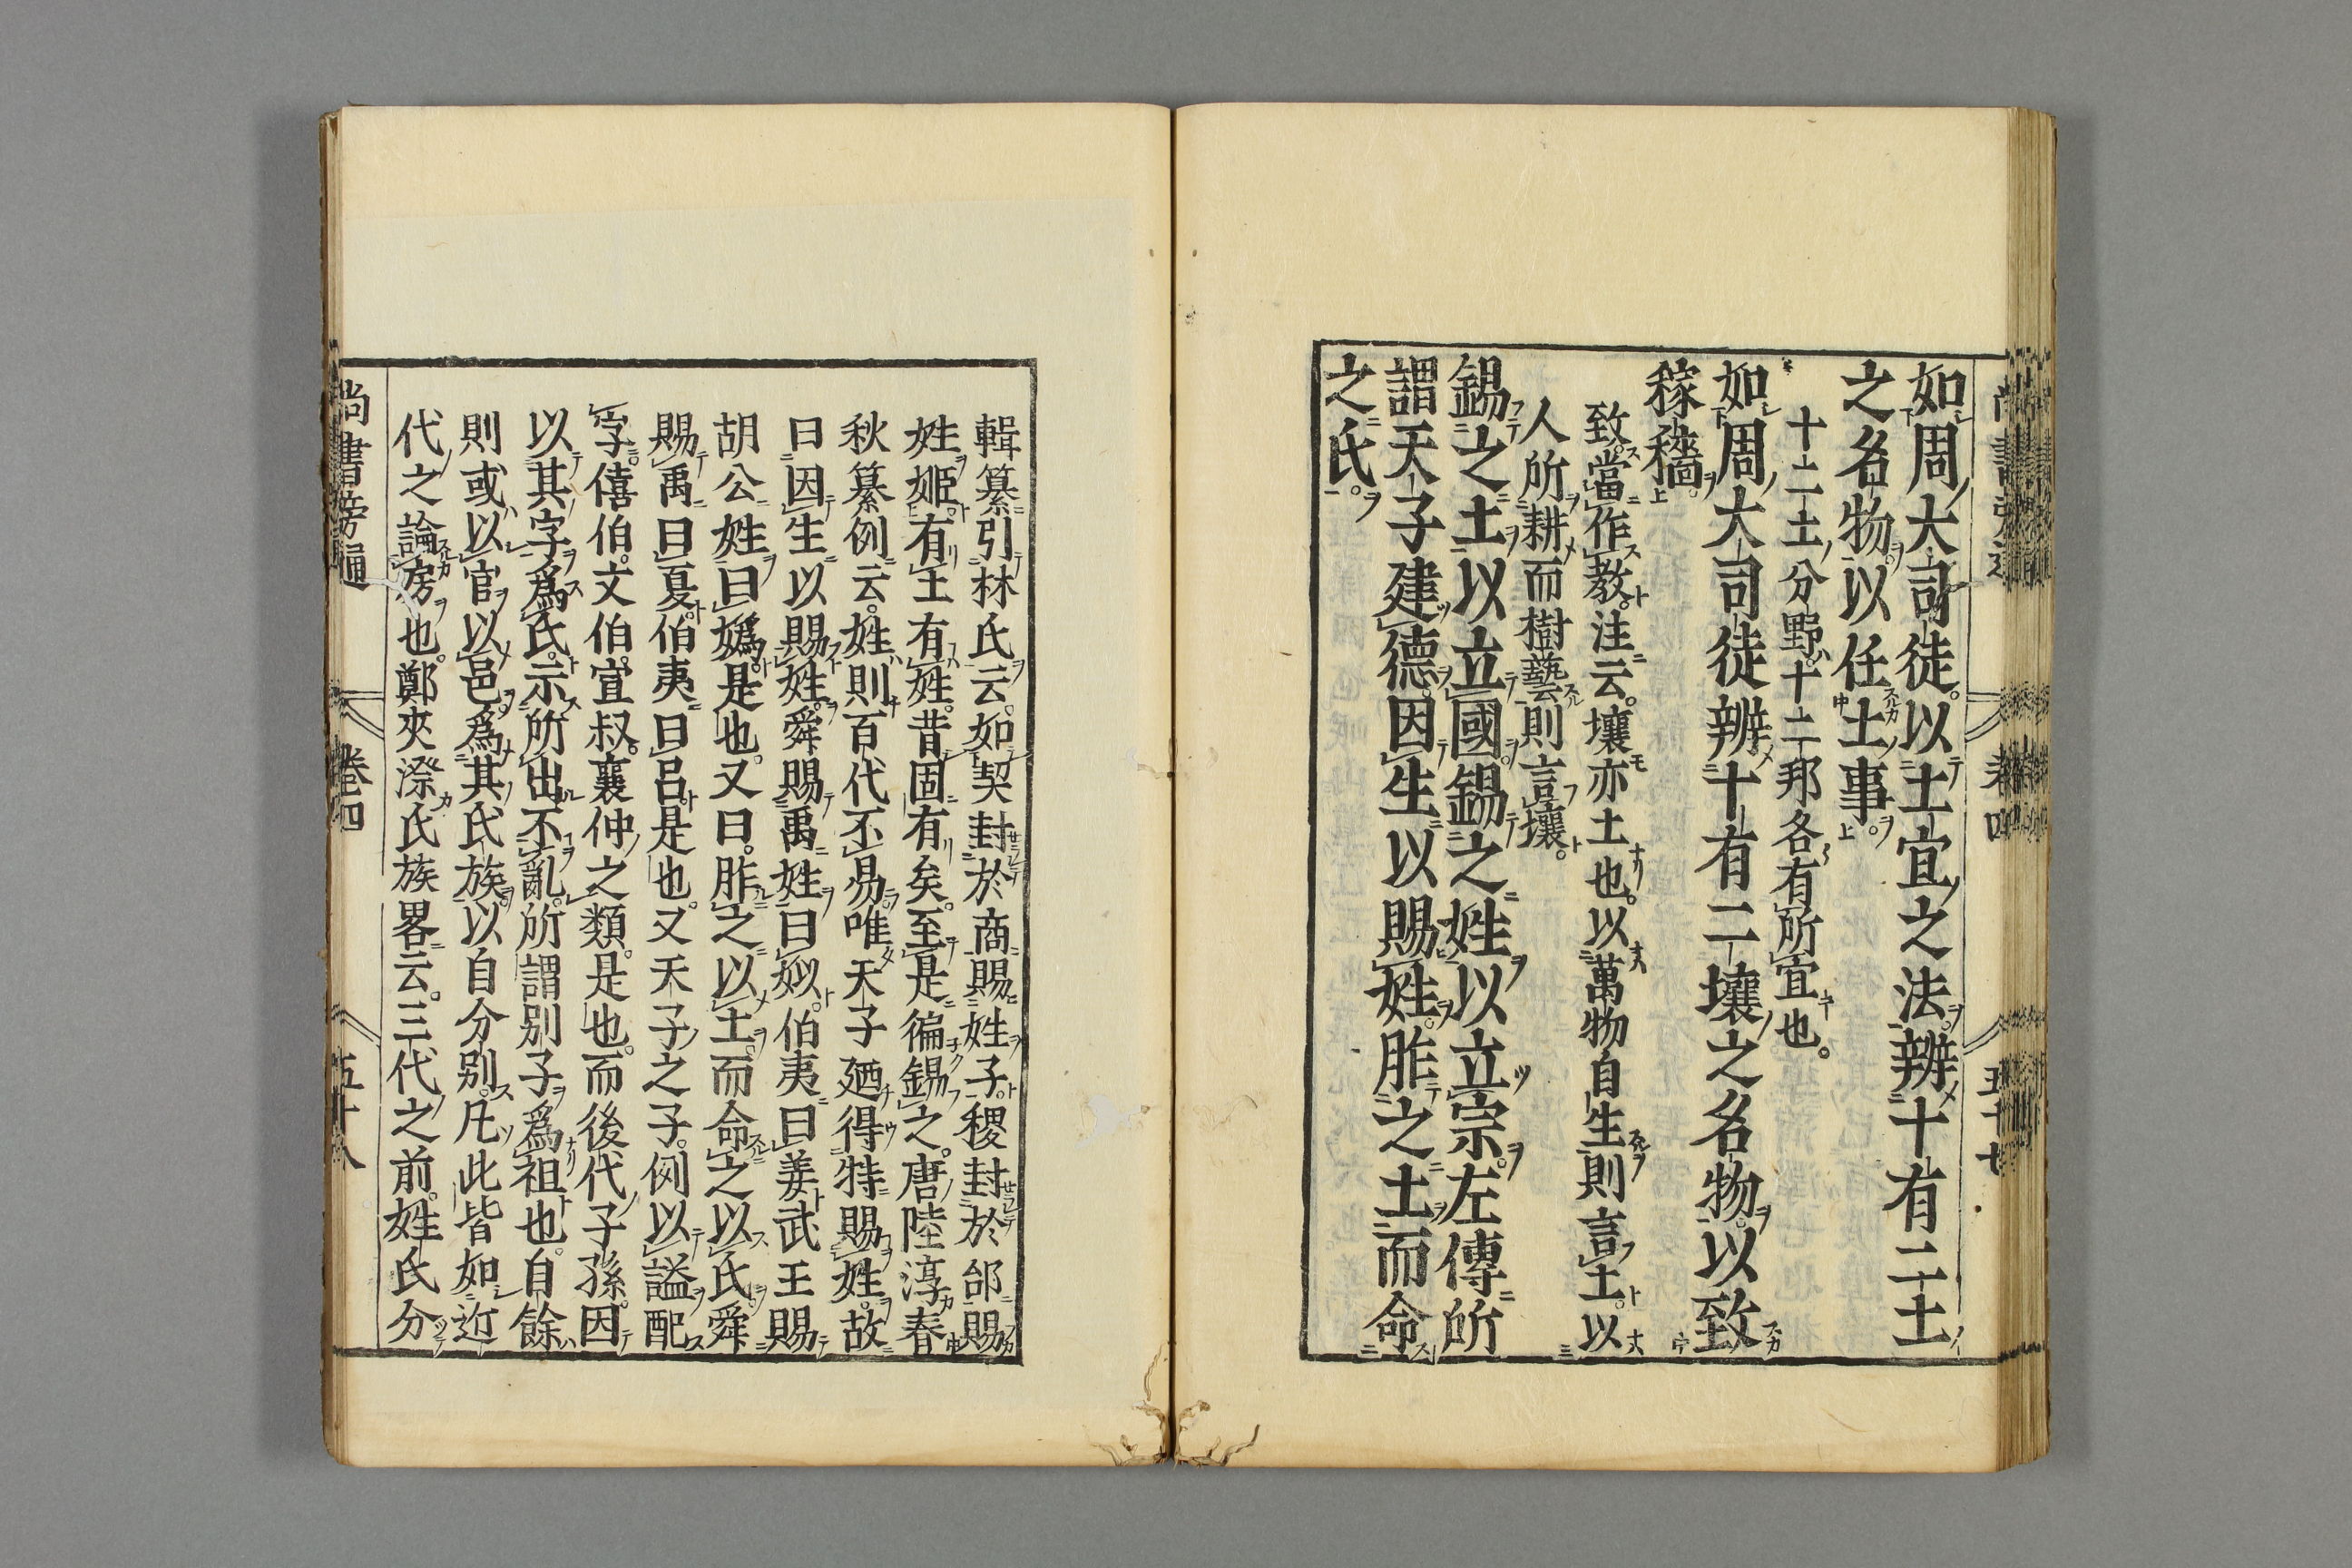 如周大司徒。以土宜之法。辨十有二土
之名物。以任土事。
十二土分野十二邦各有所宜也。
如周大司徒辨十有二壤之名物。以致
稼穡。
致。當作教。注云。壤亦土也。以萬物自生則言土。以
人所耕而樹藝則言壤。
錫之土以立國。錫之姓以立宗。左傳所
謂天子建德。因生以賜姓。胙之土而命
之氏。
輯纂引林氏云。如契封於商賜姓子。稷封於邰賜
姓姬。有土有姓。昔固有矣。至是徧錫之。唐陸淳春
秋纂例云。姓則百代不易。唯天子廼得特賜姓。故
曰因生以賜姓。舜賜禹姓曰姒。伯夷曰姜武王賜
胡公姓曰嬀。是也。又曰。胙之以土。而命之以氏。舜
賜禹曰夏。伯夷曰呂。是也。又天子之子。例以謚配
字。僖伯。文伯。宣叔。襄仲之類。是也。而後代子孫。因
以其字爲氏。示所出不亂。所謂別子爲祖也。自餘
則或以官以邑爲其氏族。以自分別。凡此皆如近
代之論房也。鄭夾漈氏族畧云。三代之前。姓氏分
尚書旁通
卷四
五十八
卷四
五十七